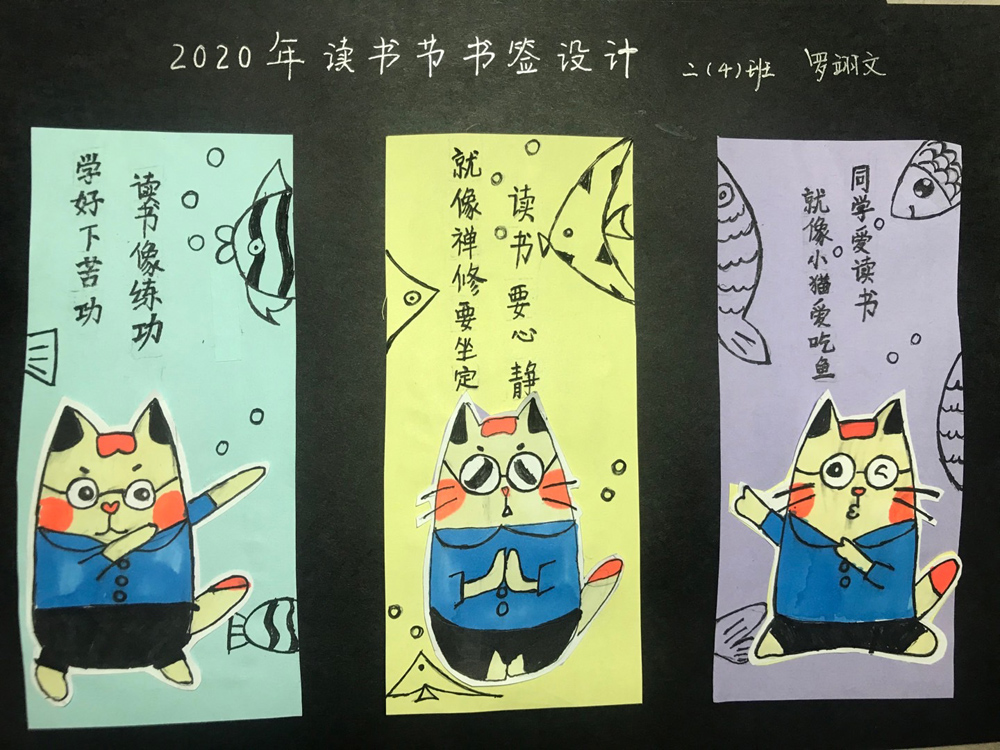 2020年读书节书签设计
二(4)班 罗翊文
读书像练功
学好下苦功
读书要心静
就像禅修要坐定
同学爱读书
就像小猫爱吃鱼